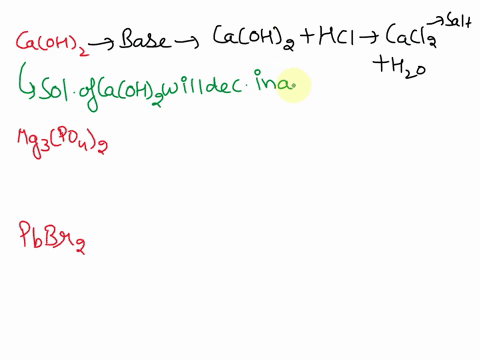 Ca(OH)₂ → Base → Ca(OH)₂ + HCl → CaCl₂ → Salt
+ H₂O
↳ Sol. of Ca(OH)₂ will dec. in a
Mg₃(PO₄)₂
PbBr₂